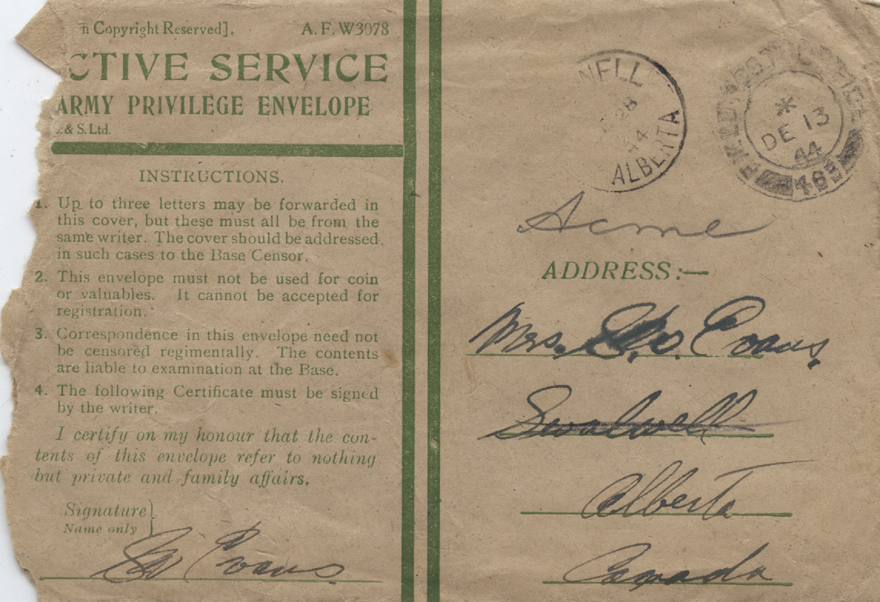 n Copyright Reserved]. A. F. W3078
CTIVE SERVICE
ARMY PRIVILEGE ENVELOPE
. & S. Ltd.
INSTRUCTIONS.
1. Up to three letters may be forwarded in
this cover, but these must all be from the
same writer. The cover should be addressed
in such cases to the Base Censor.
2. This envelope must not be used for coin
or valuables. It cannot be accepted for
registration.
3. Correspondence in this envelope need not
be censored regimentally. The contents
are liable to examination at the Base.
4. The following Certificate must be signed
by the writer.
I certify on my honour that the con-
tents of this envelope refer to nothing
but private and family affairs.
Signature
Name only
Evans.
WELL
28
44
ALBERTA
DE 13
44
Acme
ADDRESS:—
Mrs. Evans.
Swalwell
Alberta
Canada